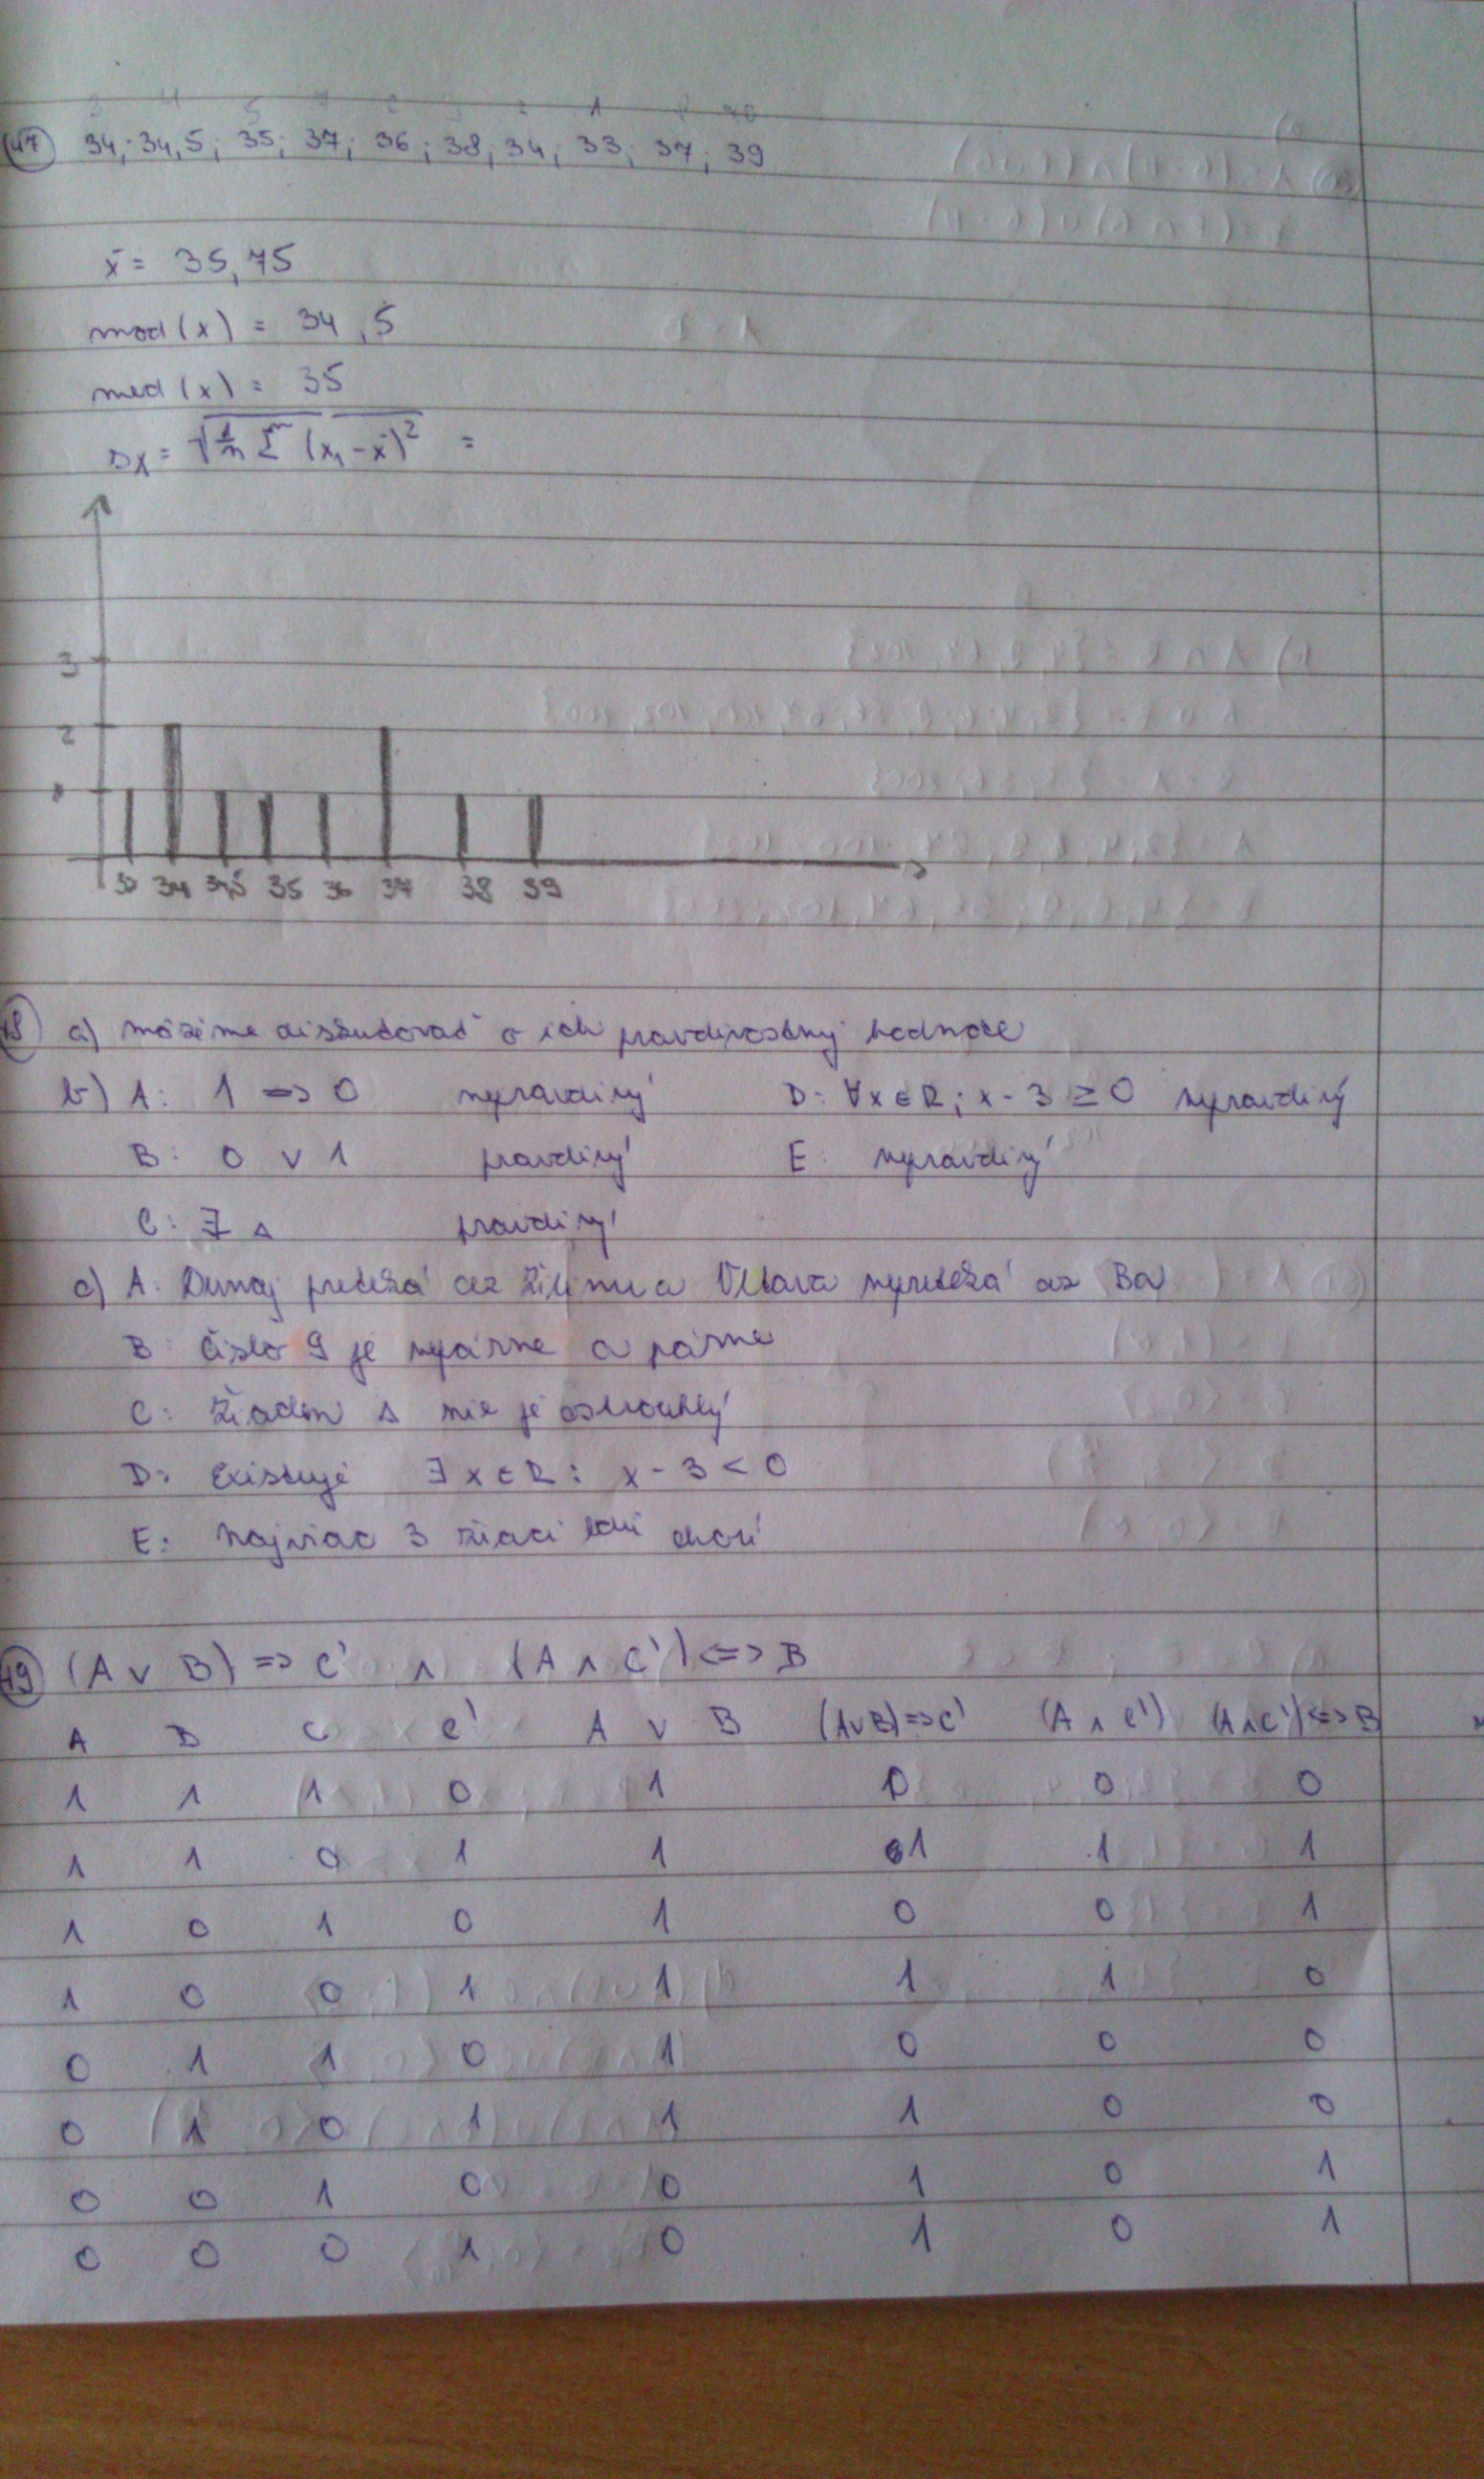 47 34; 34,5; 35; 37; 36; 38, 34, 33; 37; 39
x̄ = 35,75
mod(x) = 34,5
med(x) = 35
sx = √1/n Σ (x₁ - x̄)² =
3
2
33 34 34,5 35 36 37 38 39
a) môžeme diskutovať o ich pravdivostnej hodnote
b) A: 1 => 0 nepravdivý D: ∀x∈R; x - 3 ≥ 0 nepravdivý
B: 0 ∨ 1 pravdivý E: nepravdivý
C: ∃ Δ pravdivý
c) A: Dunaj preteká cez Žilinu a Vltava nepreteká cez Ba
B: číslo 9 je nepárne a párne
C: žiaden Δ nie je ostrouhlý
D: Existuje ∃x∈R: x - 3 < 0
E: Najviac 3 žiaci boli chorí
19 (A ∨ B) => C' ∧ (A ∧ C') <=> B
A B C C' A ∨ B (A∨B)=>C' (A ∧ C') (A∧C')<=>B
1 1 1 0 1 0 0 0
1 1 0 1 1 1 1 1
1 0 1 0 1 0 0 1
1 0 0 1 1 1 1 0
0 1 1 0 1 0 0 0
0 1 0 1 1 1 0 0
0 0 1 0 0 1 0 1
0 0 0 1 0 1 0 1